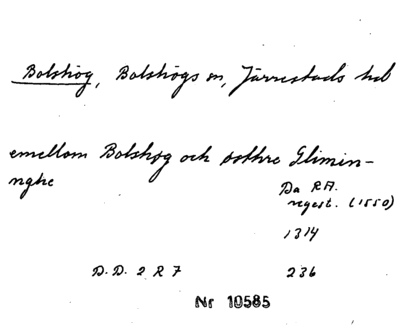 Bolshög, Bolshögs sn, Järrestads hd
emellom Bolshøg och østhre Glimin-
nghe
Da RA.
regest. (1550)
1314
D.D. 2 R 7 236
Nr 10585